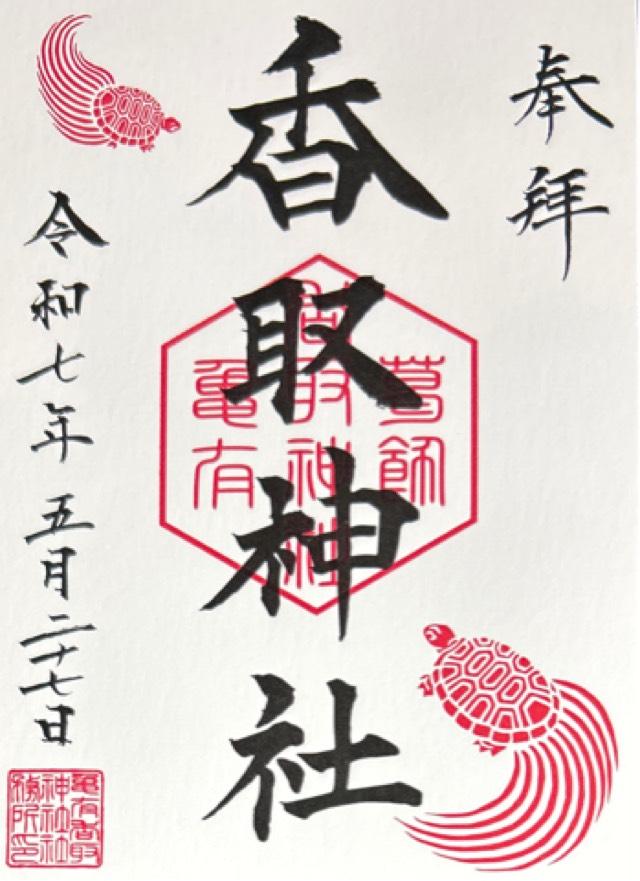 奉拝
香取神社
葛飾
香取神社
亀有
令和七年 五月二十七日
亀有香取
神社社
務所印